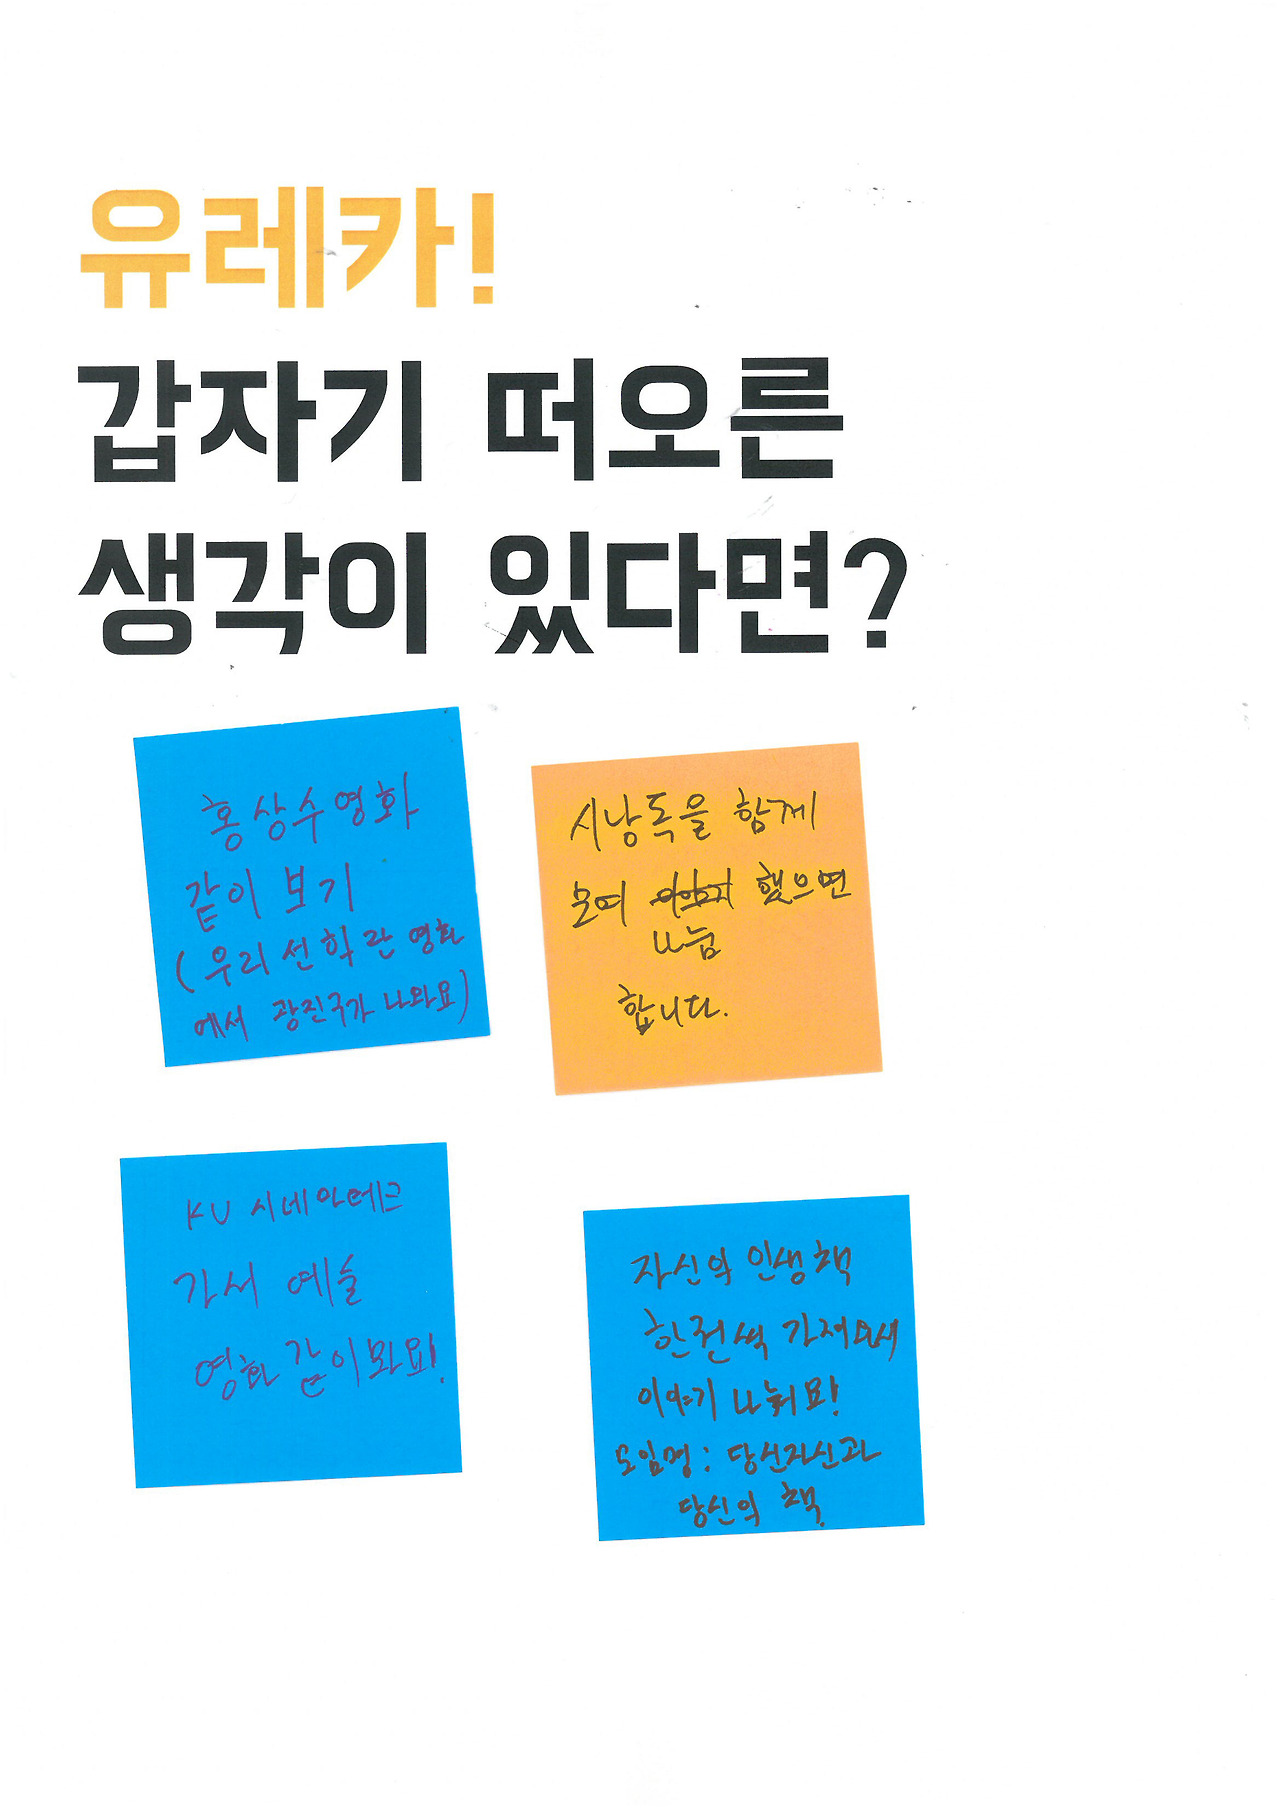 유레카!
갑자기 떠오른
생각이 있다면?
홍상수 영화
같이 보기
(우리 선학란 영화
에서 광진구가 나와요)
시낭독을 함께
모여 했으면
나눔
합니다.
KU 시네마테크
가서 예술
영화 같이봐요!
자신의 인생책
한권씩 가져와서
이야기 나눠요!
모임명 : 당신자신과
당신의 책